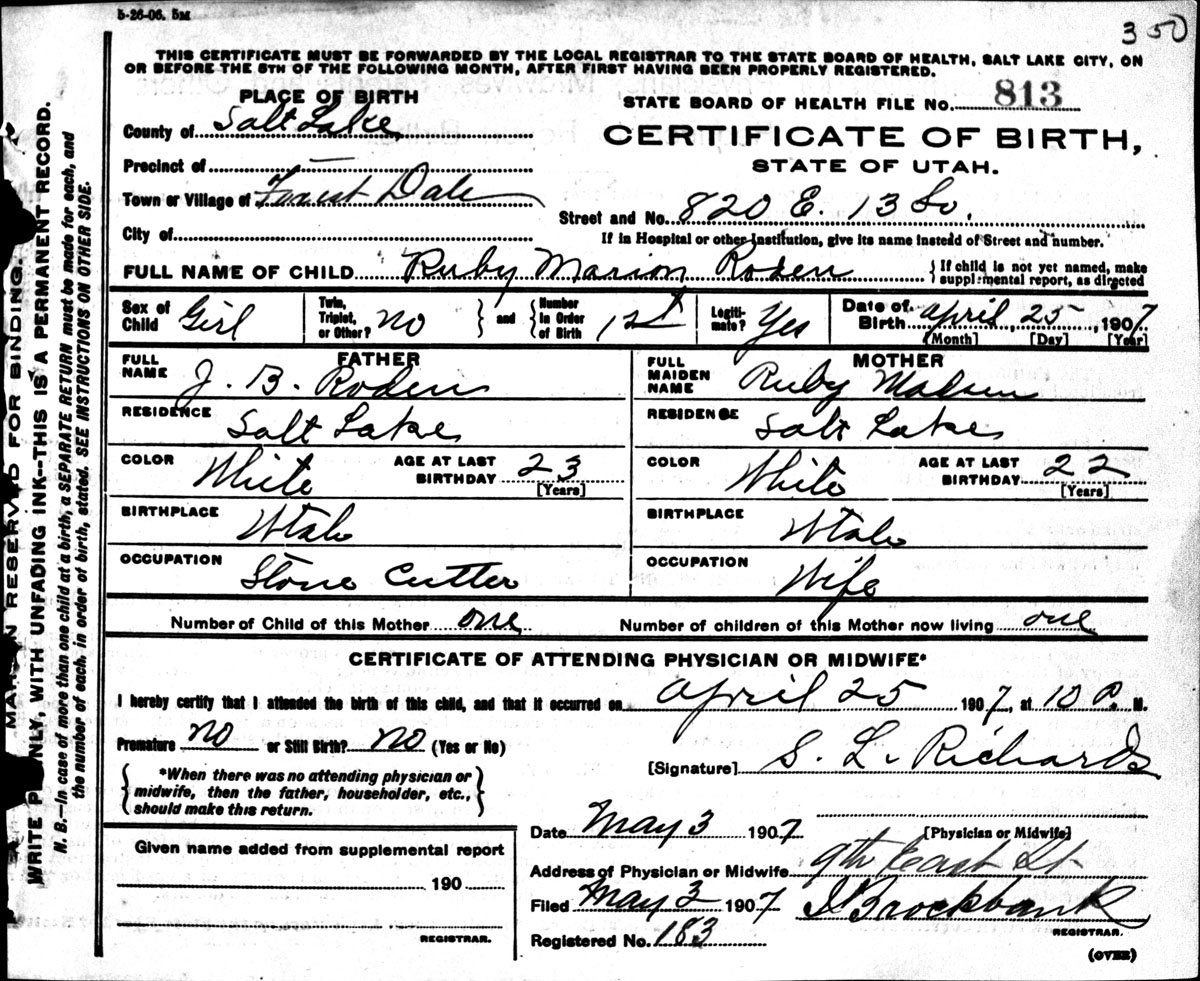 5-26-06. 5M
3 50
THIS CERTIFICATE MUST BE FORWARDED BY THE LOCAL REGISTRAR TO THE STATE BOARD OF HEALTH, SALT LAKE CITY, ON
OR BEFORE THE 5TH OF THE FOLLOWING MONTH, AFTER FIRST HAVING BEEN PROPERLY REGISTERED.
PLACE OF BIRTH
STATE BOARD OF HEALTH FILE NO. 813
County of Salt Lake
CERTIFICATE OF BIRTH,
STATE OF UTAH.
Precinct of —
Town or Village of Forest Dale
Street and No. 820 E. 13 So.
City of
If in Hospital or other Institution, give its name instead of Street and number.
FULL NAME OF CHILD Ruby Marion Roden { If child is not yet named, make
supplemental report, as directed
Sex of Child Girl Twin, Triplet, or Other? No } and { Number in Order of Birth 1st Legiti- mate? Yes Date of Birth April, 25, 1907
[Month] [Day] [Year]
FATHER MOTHER
FULL NAME J. B. Roden FULL MAIDEN NAME Ruby Madsen
RESIDENCE Salt Lake RESIDENCE Salt Lake
COLOR White AGE AT LAST BIRTHDAY 23 [Years] COLOR White AGE AT LAST BIRTHDAY 22 [Years]
BIRTHPLACE Utah BIRTHPLACE Utah
OCCUPATION Stone Cutter OCCUPATION Wife
Number of Child of this Mother one Number of children of this Mother now living one
CERTIFICATE OF ATTENDING PHYSICIAN OR MIDWIFE*
I hereby certify that I attended the birth of this child, and that it occurred on April 25 1907, at 10 P. M.
Premature no or Still Birth? no (Yes or No)
[Signature] S. L. Richards
{ *When there was no attending physician or
midwife, then the father, householder, etc.,
should make this return. }
Date May 3 1907 [Physician or Midwife]
Given name added from supplemental report
190
REGISTRAR.
Address of Physician or Midwife 9th East St
Filed May 3 1907 Brockbank
REGISTRAR.
Registered No. 183
(OVER)
MARGIN RESERVED FOR BINDING.
WRITE PLAINLY, WITH UNFADING INK--THIS IS A PERMANENT RECORD.
N. B.—In case of more than one child at a birth, a SEPARATE RETURN must be made for each, and
the number of each, in order of birth, stated. SEE INSTRUCTIONS ON OTHER SIDE.